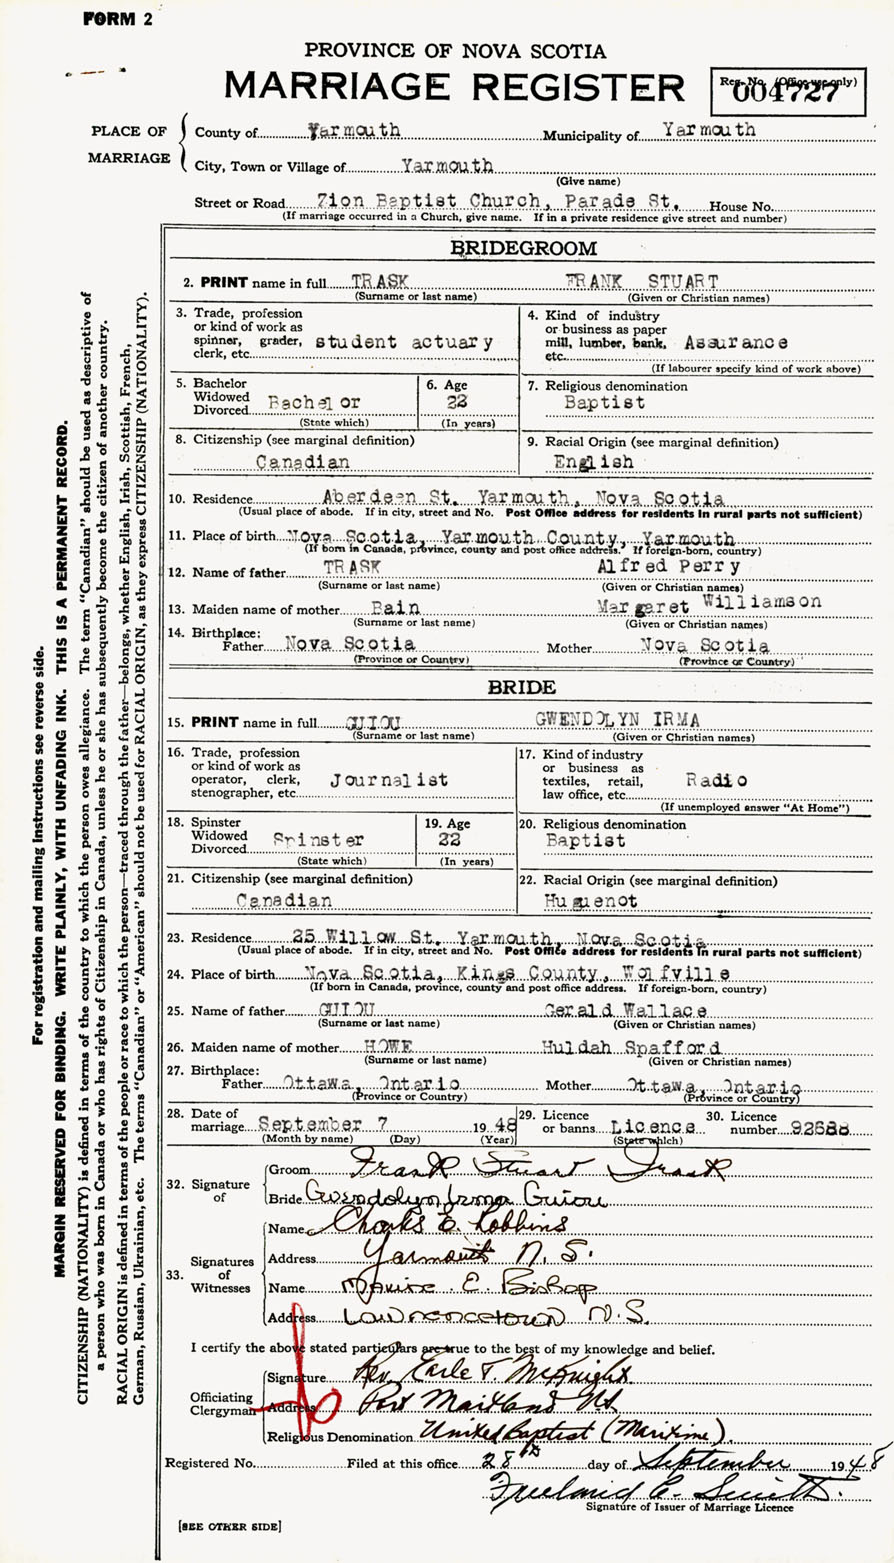 FORM 2
PROVINCE OF NOVA SCOTIA
MARRIAGE REGISTER
Reg. No. (Office use only)
004727
PLACE OF MARRIAGE
County of Yarmouth Municipality of Yarmouth
City, Town or Village of Yarmouth
(Give name)
Street or Road Zion Baptist Church, Parade St. House No.
(If marriage occurred in a Church, give name. If in a private residence give street and number)
BRIDEGROOM
2. PRINT name in full TRASK FRANK STUART
(Surname or last name) (Given or Christian names)
3. Trade, profession
or kind of work as
spinner, grader,
clerk, etc. student actuary
4. Kind of industry
or business as paper
mill, lumber, bank,
etc. Assurance
(If labourer specify kind of work above)
5. Bachelor
Widowed
Divorced Bachelor
(State which)
6. Age
22
(In years)
7. Religious denomination
Baptist
8. Citizenship (see marginal definition)
Canadian
9. Racial Origin (see marginal definition)
English
10. Residence Aberdeen St. Yarmouth, Nova Scotia
(Usual place of abode. If in city, street and No. Post Office address for residents in rural parts not sufficient)
11. Place of birth Nova Scotia, Yarmouth County, Yarmouth
(If born in Canada, province, county and post office address. If foreign-born, country)
12. Name of father TRASK Alfred Perry
(Surname or last name) (Given or Christian names)
13. Maiden name of mother Bain Margaret Williamson
(Surname or last name) (Given or Christian names)
14. Birthplace:
Father Nova Scotia Mother Nova Scotia
(Province or Country) (Province or Country)
BRIDE
15. PRINT name in full GUIOU GWENDOLYN IRMA
(Surname or last name) (Given or Christian names)
16. Trade, profession
or kind of work as
operator, clerk,
stenographer, etc. Journalist
17. Kind of industry
or business as
textiles, retail,
law office, etc. Radio
(If unemployed answer "At Home")
18. Spinster
Widowed
Divorced Spinster
(State which)
19. Age
22
(In years)
20. Religious denomination
Baptist
21. Citizenship (see marginal definition)
Canadian
22. Racial Origin (see marginal definition)
Huguenot
23. Residence 25 Willow St. Yarmouth, Nova Scotia
(Usual place of abode. If in city, street and No. Post Office address for residents in rural parts not sufficient)
24. Place of birth Nova Scotia, Kings County, Wolfville
(If born in Canada, province, county and post office address. If foreign-born, country)
25. Name of father GUIOU Gerald Wallace
(Surname or last name) (Given or Christian names)
26. Maiden name of mother HOWE Huldah Spafford
(Surname or last name) (Given or Christian names)
27. Birthplace:
Father Ottawa, Ontario Mother Ottawa, Ontario
(Province or Country) (Province or Country)
28. Date of
marriage September 7 1948
(Month by name) (Day) (Year)
29. Licence
or banns Licence
(State which)
30. Licence
number 92688
32. Signature of
Groom Frank Stuart Trask
Bride Gwendolyn Irma Guiou
33. Signatures of Witnesses
Name Charles E. Robbins
Address Yarmouth N. S.
Name Maxine E. Bishop
Address Lawrencetown N.S.
I certify the above stated particulars are true to the best of my knowledge and belief.
Officiating Clergyman
Signature Rev. Earle T. McKnight
Address Port Maitland N.S.
Religious Denomination United Baptist (Maritime).
Registered No. Filed at this office 28th day of September 1948
Freeland E. Smith.
Signature of Issuer of Marriage Licence
[SEE OTHER SIDE]
For registration and mailing instructions see reverse side.
MARGIN RESERVED FOR BINDING. WRITE PLAINLY, WITH UNFADING INK. THIS IS A PERMANENT RECORD.
CITIZENSHIP (NATIONALITY) is defined in terms of the country to which the person owes allegiance. The term "Canadian" should be used as descriptive of
a person who was born in Canada or who has rights of Citizenship in Canada, unless he or she has subsequently become the citizen of another country.
RACIAL ORIGIN is defined in terms of the people or race to which the person—traced through the father—belongs, whether English, Irish, Scottish, French,
German, Russian, Ukrainian, etc. The terms "Canadian" or "American" should not be used for RACIAL ORIGIN, as they express CITIZENSHIP (NATIONALITY).